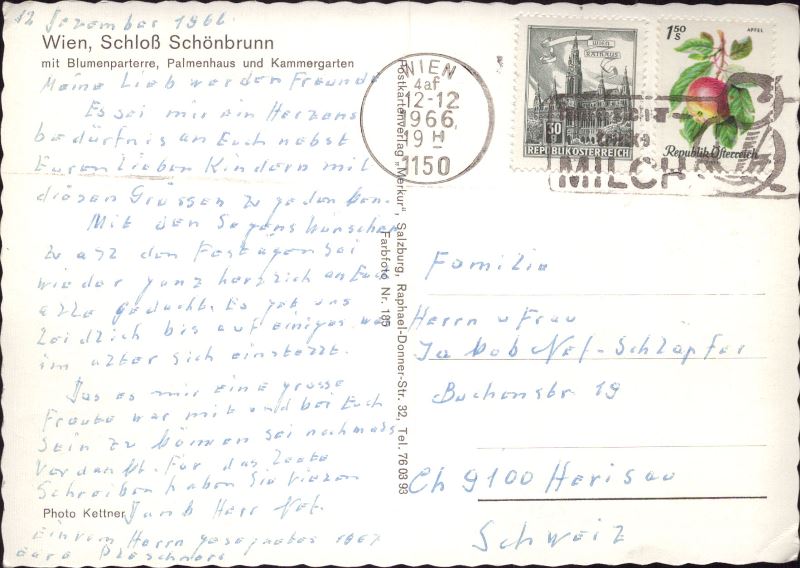 12 Dezember 1966
Wien, Schloß Schönbrunn
mit Blumenparterre, Palmenhaus und Kammergarten
Meine Lieb werden Freunde
Es sei mir ein Herzens
bedürfnis an Euch nebst
Euren Lieben Kindern mit
diesen Grüssen zu gedenken.
Mit den Segens Wünschen
zu all den Festagen sei
wieder ganz herzlich an Euch
alle gedacht. Es geht uns
leidlich bis auf einiges was
im alter sich einstellt.
Das es mir eine grosse
Freude war mit und bei Euch
sein zu können sei nochmals
verdankt. Für das Letzte
Schreiben haben Sie vielen
Photo Kettner
Dank Herr Nef.
Einem Herrn gesegnetes 1967
WIEN
4af
12-12
1966
19 H
1150
WIEN
RATHAUS
30 g
REPUBLIK ÖSTERREICH
1.50 S
APFEL
Republik Österreich
MILCH
Postkartenverlag „Merkur", Salzburg, Raphael-Donner-Str. 32, Tel. 76 03 93
Farbfoto Nr. 185
Familie
Herrn u Frau
Jakob Nef-Schläpfer
Buchenstr 19
Ch 9100 Herisau
Schweiz